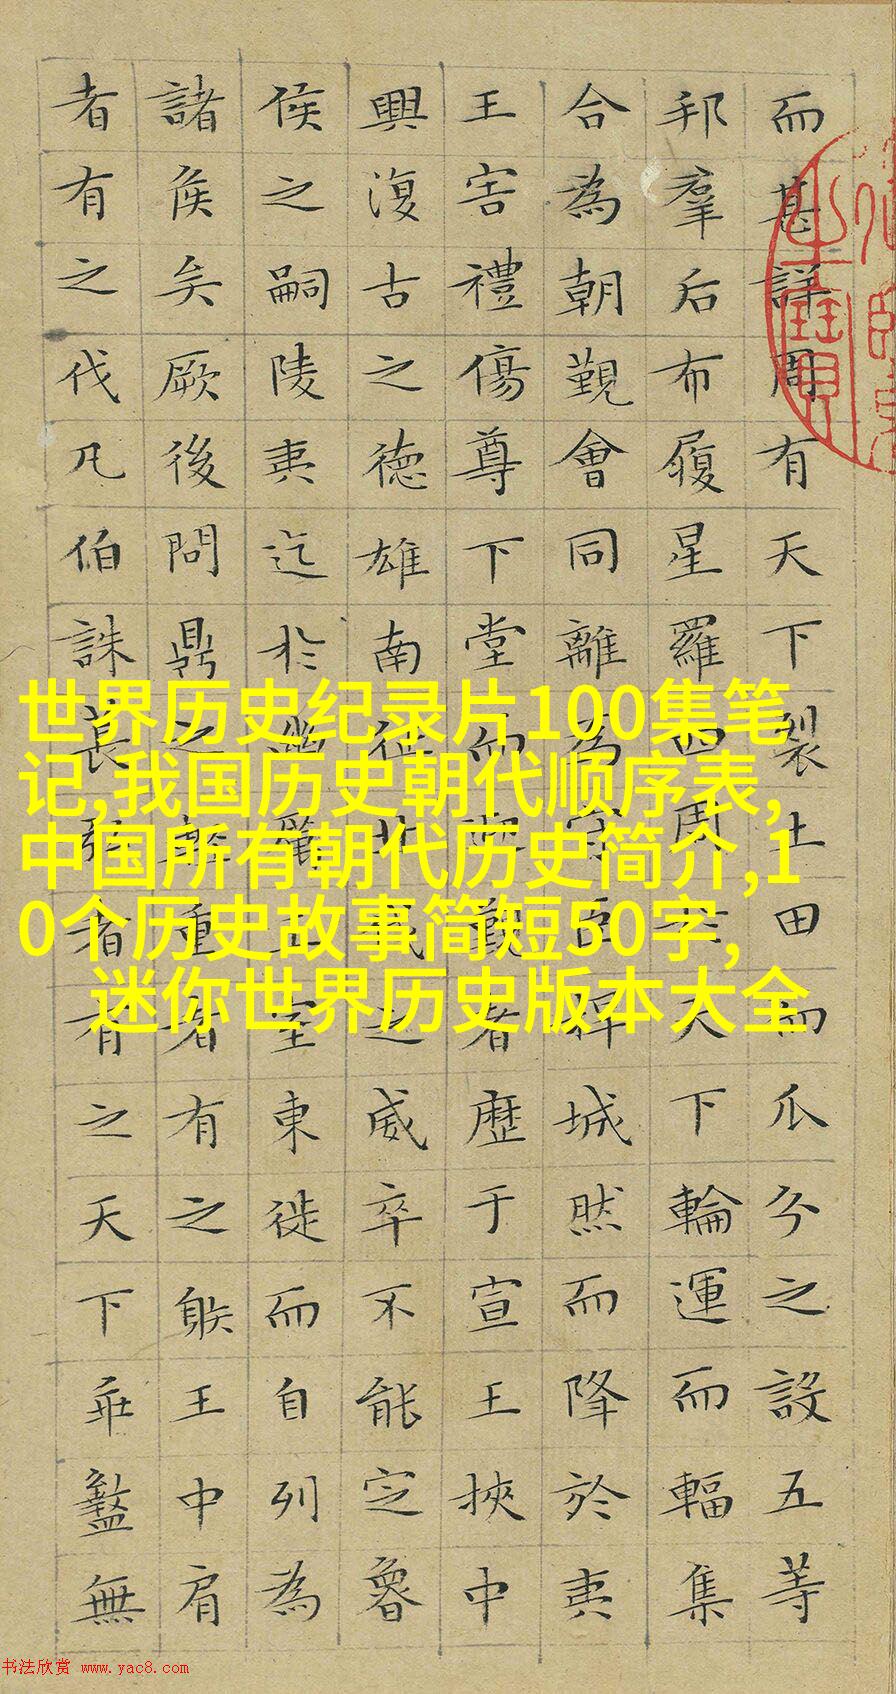 而甚詳周有天下裂土田而瓜分之設五等
邦羣后布履星羅四周於天下輪運而輻集
合為朝覲會同離為守臣捍城然而降於夷
王害禮傷尊下堂而迎覲者歷于宣王挾中
興復古之德雄南征北伐之威卒不能定魯
侯之嗣陵夷迄於幽厲王室東徙而自列為
諸侯矣厥後問鼎之輕重者有之射王中肩
者有之伐凡伯誅萇弘者有之天下乖盭無
世界历史纪录片100集笔
记,我国历史朝代顺序表,
中国所有朝代历史简介,1
0个历史故事简短50字,
迷你世界历史版本大全
书法欣赏 www.yac8.com